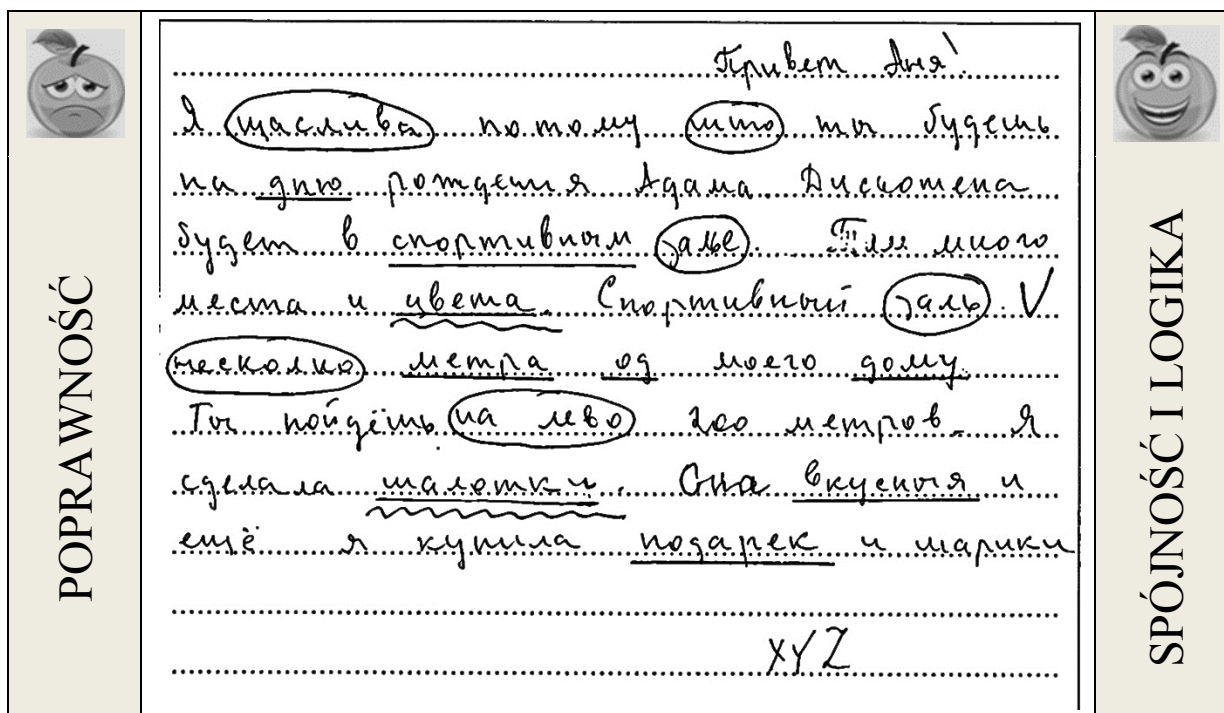 POPRAWNOŚĆ
Привет Аня!
Я щаслива потому што ты будешь
на дню рождения Адама. Дискотека
будет в спортивным залье. Там много
места и цвета. Спортивный заль. V
несколко метра од моего дому.
Ты пойдёшь на лево 200 метров. Я
сделала шалотки. Она вкусныя и
ещё я купила подарек и шарики
XYZ
SPÓJNOŚĆ I LOGIKA